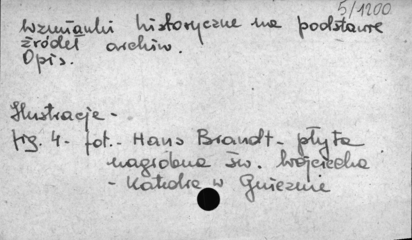 5/1200
Wzmianki historyczne na podstawie
źródeł archiw.
Opis.
Ilustracje -
frg. 4 - fot. - Hans Brandt - płyta
nagrobna św. Wojciecha
- Katedra w Gnieźnie